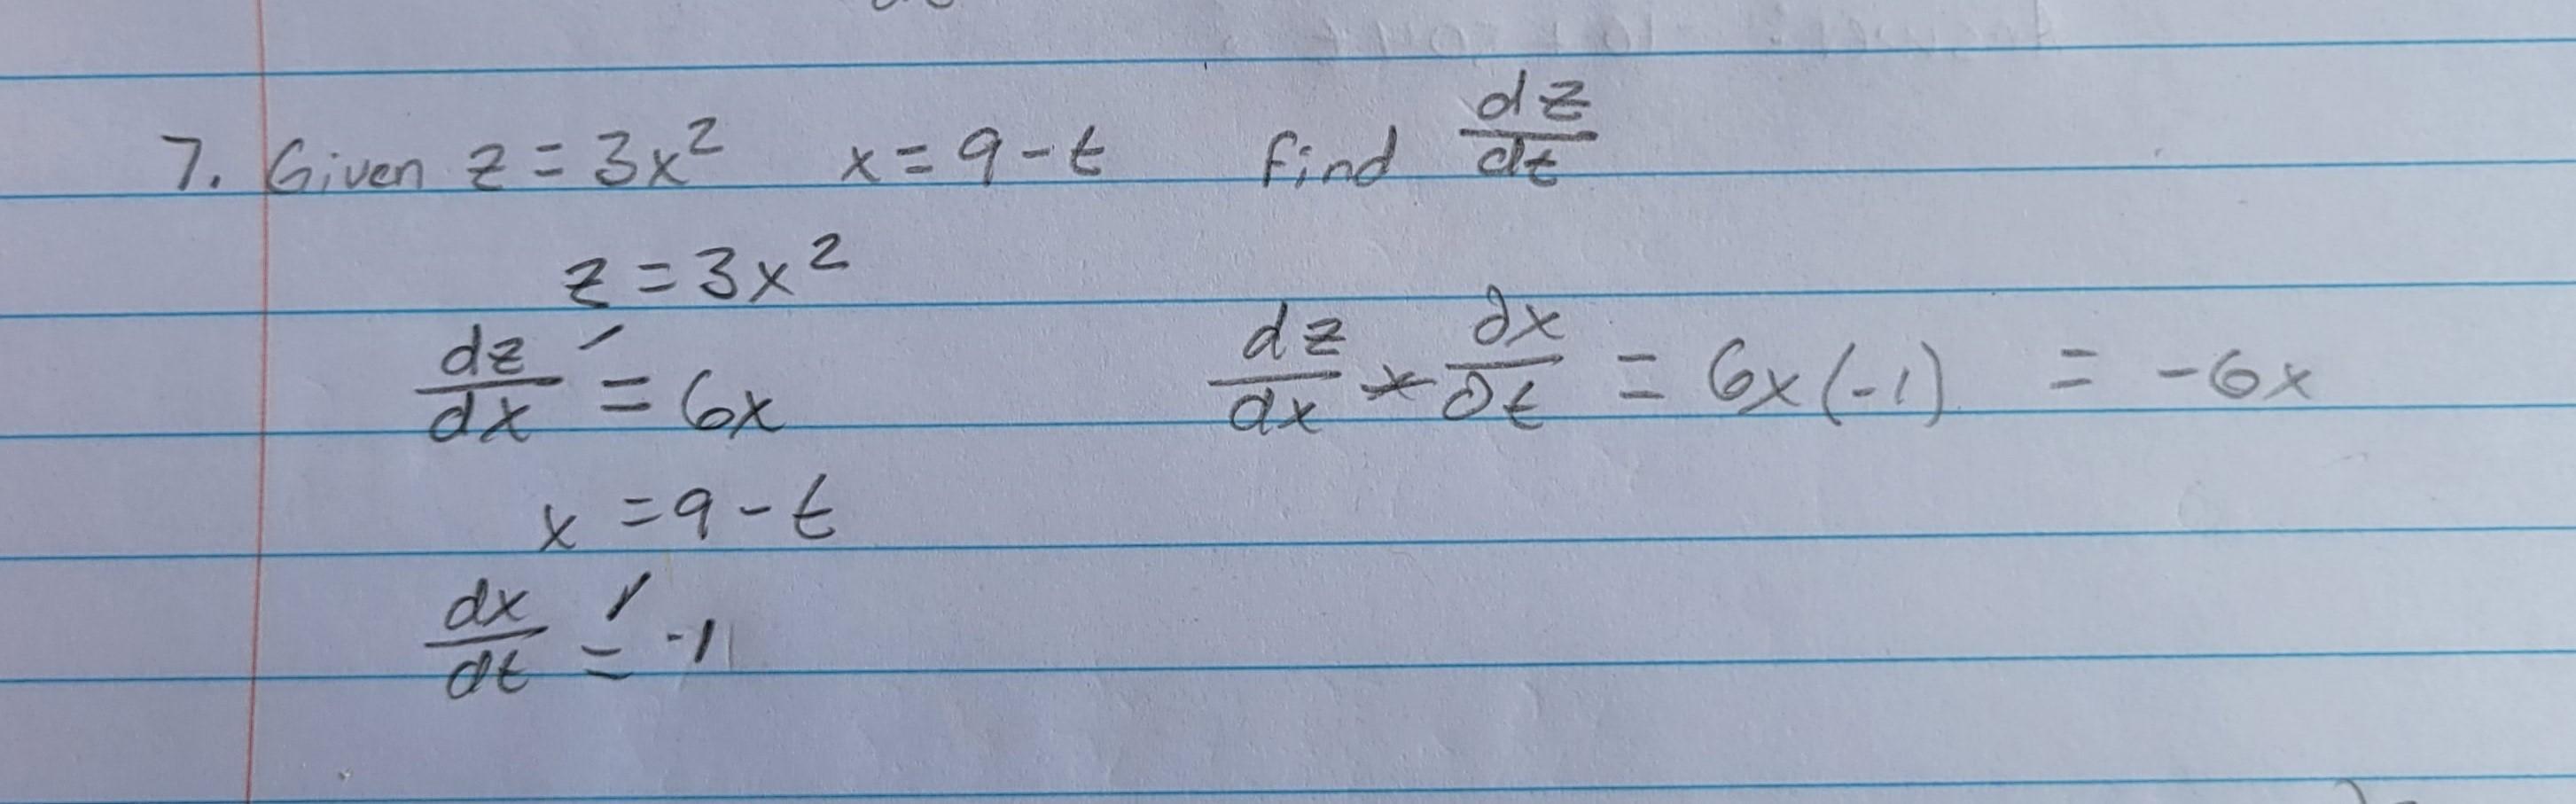 7. Given z = 3x² x = 9 - t find dz/dt
z = 3x²
dz/dx = 6x
dz/dx * ∂x/∂t = 6x(-1) = -6x
x = 9 - t
dx/dt = -1